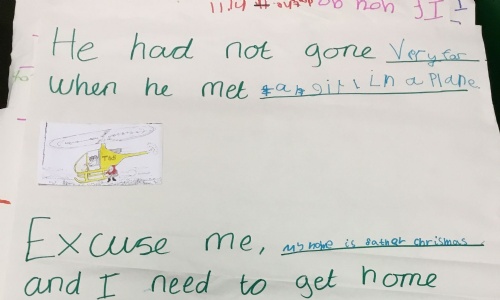 He had not gone Very far
When he met a girl in a plane
Taxi
Excuse me, my name is father chrismas
and I need to get home